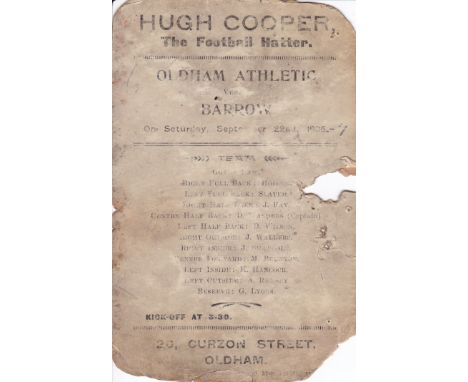 HUGH COOPER,
The Football Hatter.
OLDHAM ATHLETIC
Vs.
BARROW
On Saturday, September 22nd, 1906-7
TEAM
RIGHT FULL BACK:
LEFT FULL BACK: SLATER.
RIGHT HALF BACK: J. FAY.
CENTRE HALF BACK: D. (Captain)
LEFT HALF BACK: D. WILSON.
RIGHT OUTSIDE: J.
RIGHT INSIDE: J.
CENTRE FORWARD: M.
LEFT INSIDE: E. HANCOCK.
LEFT OUTSIDE: A.
RESERVE: G. LYONS.
KICK-OFF AT 3-30.
20, CURZON STREET,
OLDHAM.